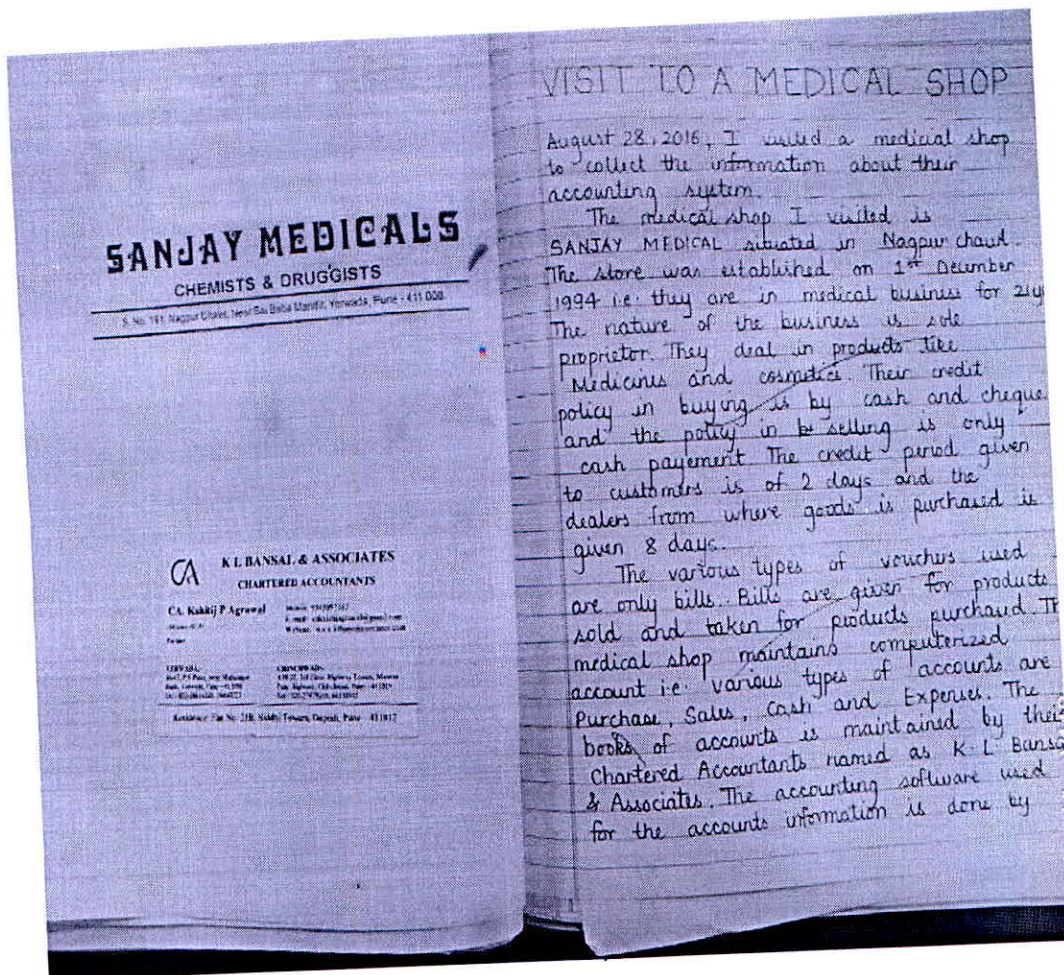 SANJAY MEDICALS
CHEMISTS & DRUGGISTS
S. No. 191, Nagpur Chawl, Near Sai Baba Mandir, Yerwada, Pune - 411 006.
K L BANSAL & ASSOCIATES
CHARTERED ACCOUNTANTS
CA. Kshitij P Agrawal
Residence: Flat No. Towers, Dapodi, Pune 411012
VISIT TO A MEDICAL SHOP
August 28, 2016, I visited a medical shop
to collect the information about their
accounting system.
The medical shop I visited is
SANJAY MEDICAL situated in Nagpur chawl.
The store was established on 1st December
1994 i.e. they are in medical business for 21y
The nature of the business is sole
proprietor. They deal in products like
Medicines and cosmetics. Their credit
policy in buying is by cash and cheque.
and the policy in selling is only
cash payement The credit period given
to customers is of 2 days and the
dealers from where goods is purchased is
given 8 days.
The various types of vouchers used
are only bills. Bills are given for products
sold and taken for products purchased. Th
medical shop maintains computerized
account i.e. various types of accounts are
Purchase, Sales, Cash and Expenses. The
books of accounts is maintained by their
Chartered Accountants named as K. L. Bansa
& Associates. The accounting software used
for the accounts information is done by